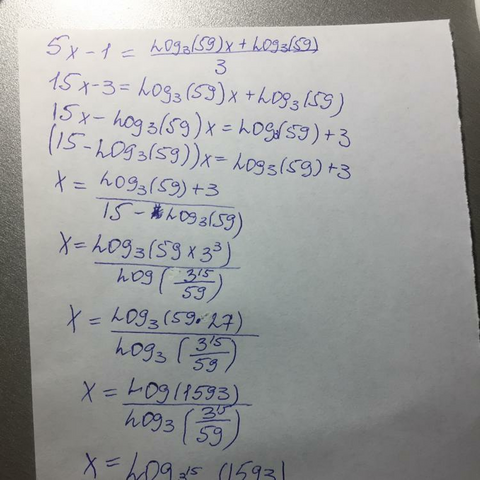 5x-1 = Log₃(59)x + Log₃(59) / 3
15x-3 = Log₃(59)x + Log₃(59)
15x - Log₃(59)x = Log₃(59) + 3
(15 - Log₃(59))x = Log₃(59) + 3
x = Log₃(59) + 3 / 15 - Log₃(59)
x = Log₃(59 × 3³) / Log (3¹⁵/59)
x = Log₃(59 · 27) / Log₃ (3¹⁵/59)
x = Log(1593) / Log₃ (3¹⁵/59)
x = Log₃15 (1593)